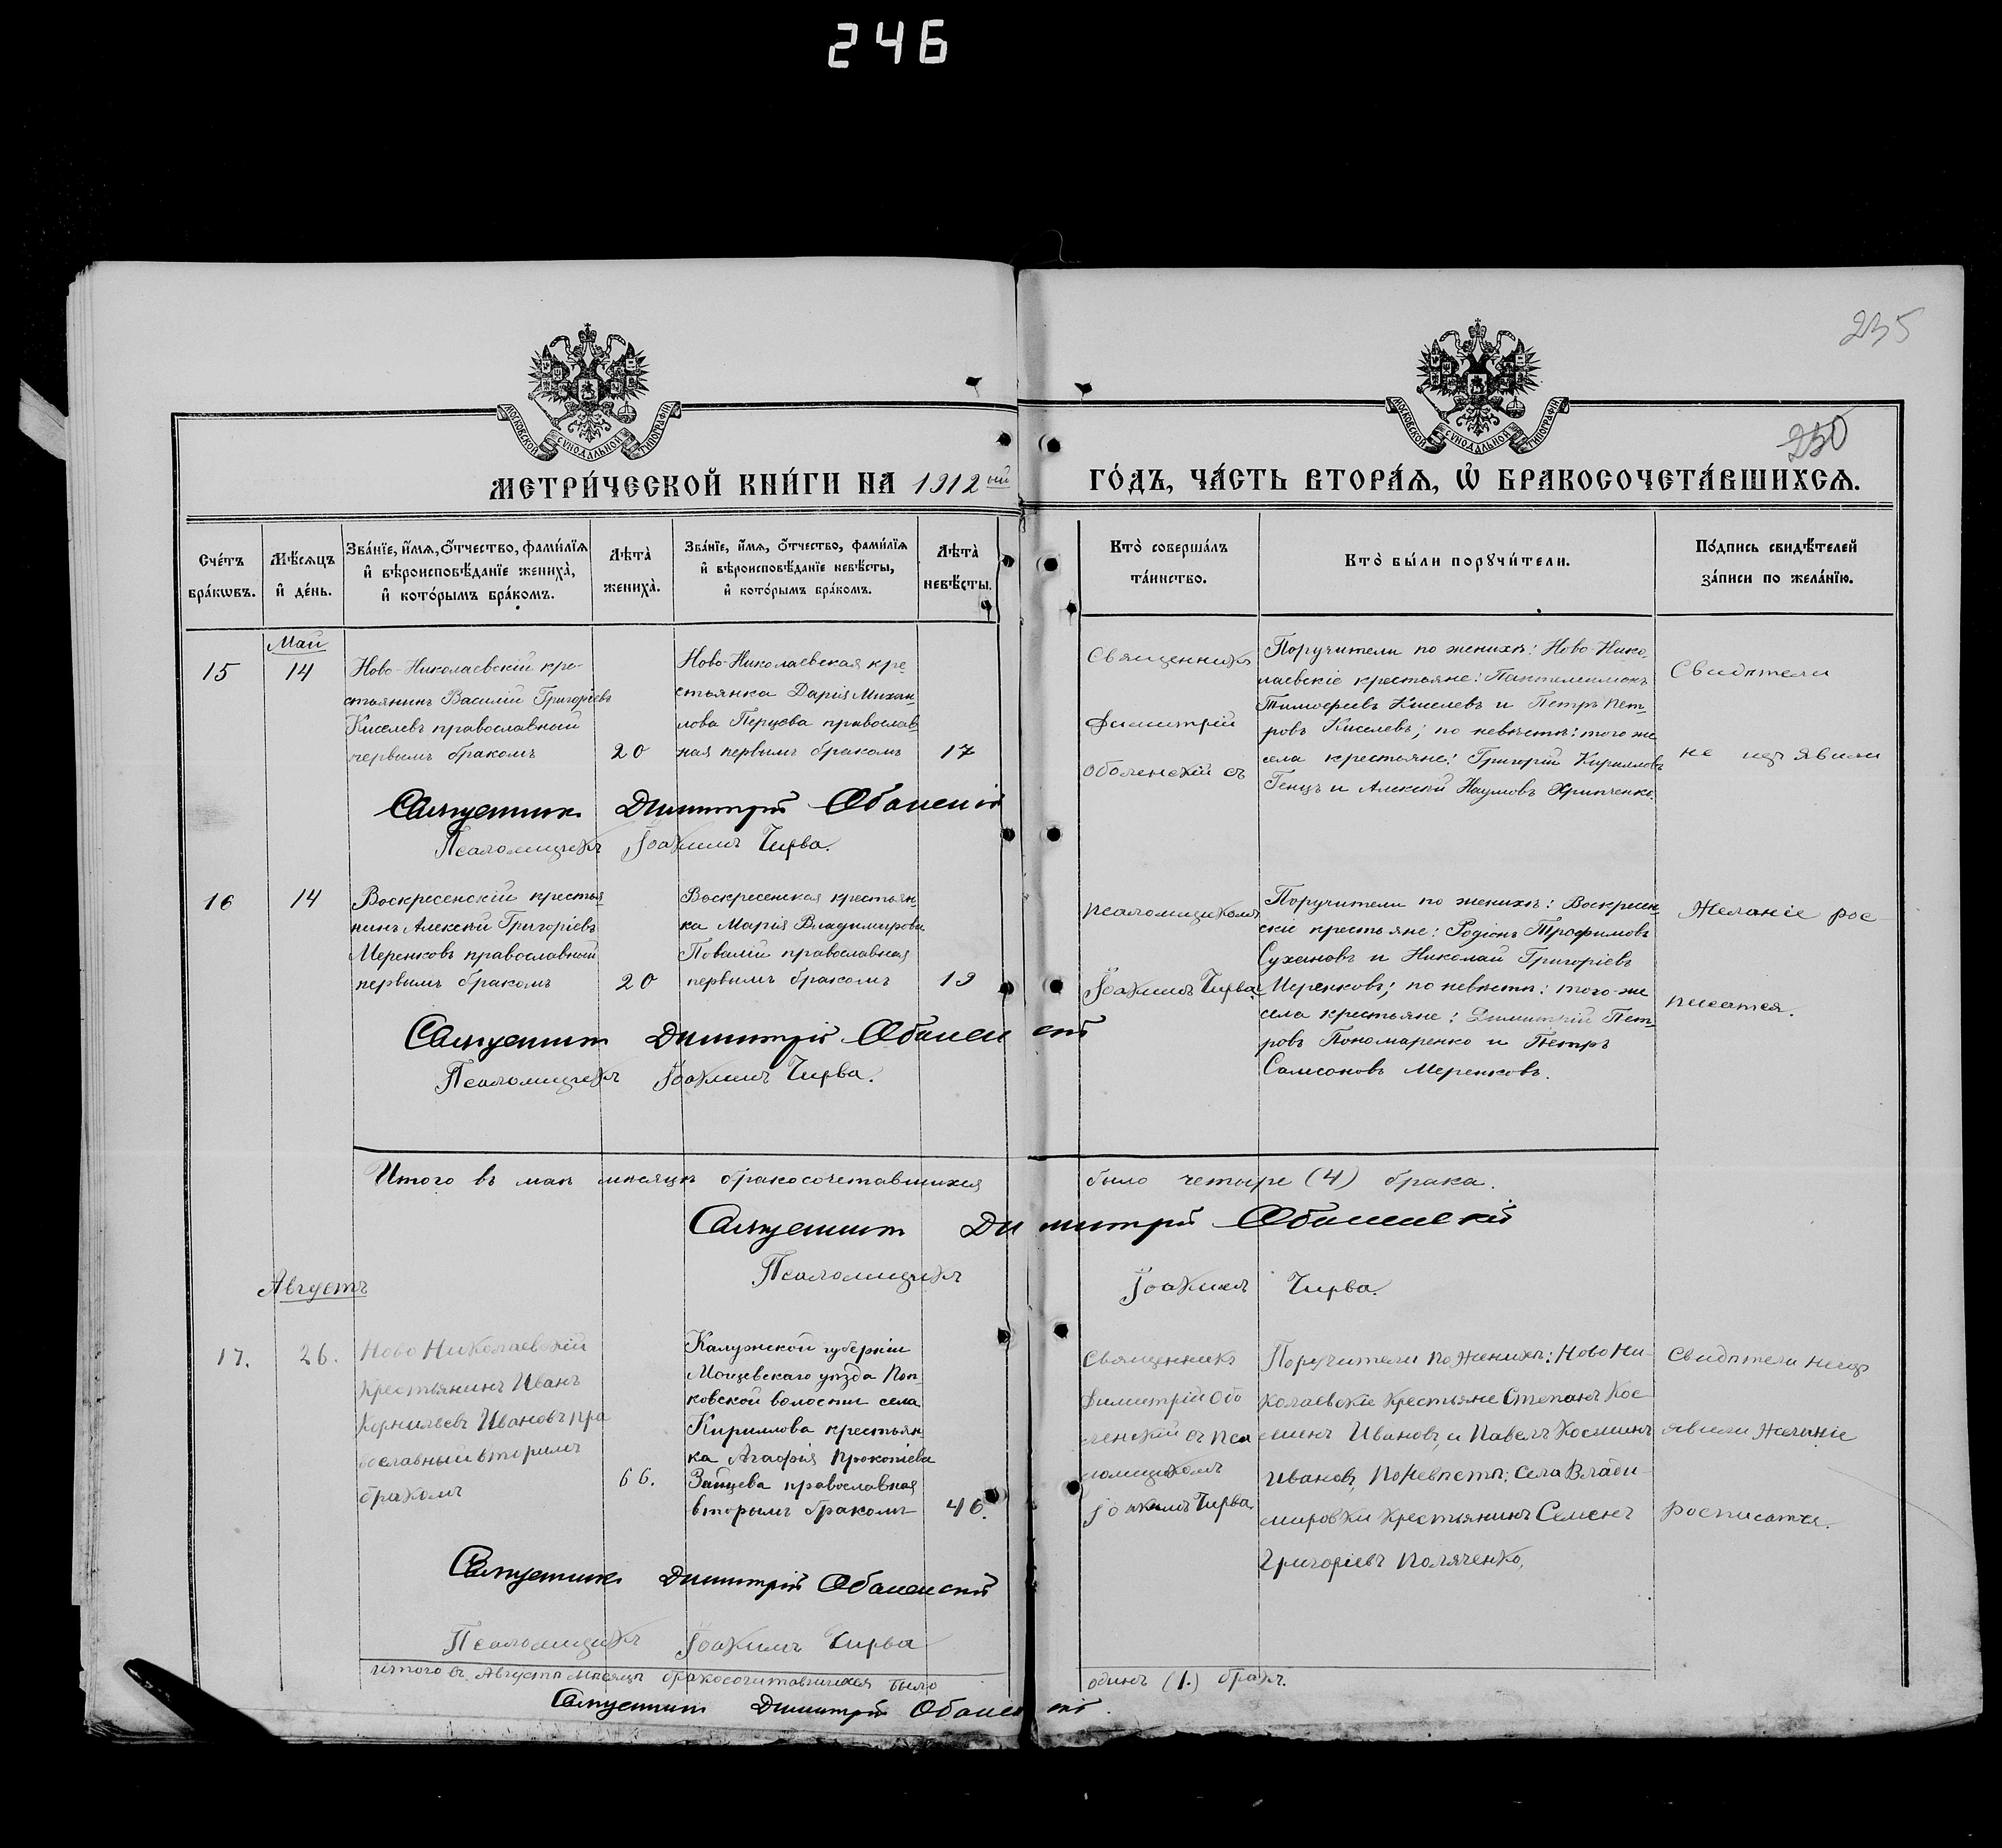 246
235
230
МОСКОВСКОЙ СѴНОДАЛЬНОЙ ТИПОГРАФІИ
МОСКОВСКОЙ СѴНОДАЛЬНОЙ ТИПОГРАФІИ
МЕТРИ́ЧЕСКОЙ КНИ́ГИ НА 1912ый ГО́ДЪ, ЧА́СТЬ ВТОРА́Ѧ, Ѽ БРАКОСОЧЕТА́ВШИХСѦ.
Сче́тъ
бра́кѡвъ.
Мѣ́сѧцъ
и҆ де́нь.
Зва́нїе, и҆́мѧ, ѻ҆́тчество, фами́лїѧ
и҆ вѣроисповѣ́данїе жениха̀,
и҆ кото́рымъ бра́комъ.
Лѣта̀
жениха̀.
Зва́нїе, и҆́мѧ, ѻ҆́тчество, фами́лїѧ
и҆ вѣроисповѣ́данїе невѣ́сты,
и҆ кото́рымъ бра́комъ.
Лѣта̀
невѣ́сты.
Кто̀ соверша́лъ
та́инство.
Кто̀ бы́ли порꙋчи́тели.
По́дпись свидѣ́телей
за́писи по жела́нїю.
Май
15
14
Ново-Николаевскій кре-
стьянинъ Василій Григоріевъ
Киселевъ православный
первымъ бракомъ
20
Ново-Николаевская кре-
стьянка Дарія Михаи-
лова Перцова православ-
ная первымъ бракомъ
17
Священникъ
Димитрій
Оболенскій съ
Поручители по женихѣ: Ново-Нико-
лаевскіе крестьяне: Пантелеимонъ
Тимофеевъ Киселевъ и Петръ Пет-
ровъ Киселевъ; по невѣстѣ: того же
села крестьяне: Григорій Кирилловъ
Генцъ и Алексѣй Наумовъ Хрипченко.
Свидѣтели
не изъявили
Священникъ Димитрій Оболенскій
Псаломщикъ Іоакимъ Чирва.
16
14
Воскресенскій крестья-
нинъ Алексѣй Григоріевъ
Меренковъ православный
первымъ бракомъ
20
Воскресенская крестьян-
ка Марія Владимирова
Повалій православная
первымъ бракомъ
19
псаломщикомъ
Іоакимъ Чирва.
Поручители по женихѣ: Воскресен-
скіе крестьяне: Родіонъ Трофимовъ
Сухановъ и Николай Григоріевъ
Меренковъ; по невѣстѣ: того-же
села крестьяне: Димитрій Пет-
ровъ Пономаренко и Петръ
Самсоновъ Меренковъ.
Желаніе рос
писатся.
Священникъ Димитрій Оболенскій
Псаломщикъ Іоакимъ Чирва.
Итого въ маѣ мѣсяцѣ бракосочетавшихся было четыре (4) брака.
Священникъ Димитрій Оболенскій
Псаломщикъ Іоакимъ Чирва.
Августъ
17.
26.
Ново Николаевскій
Крестьянинъ Иванъ
Корнильевъ Ивановъ пра
вославный вторымъ
бракомъ
66.
Калужской губерніи
Мощевскаго уѣзда Поп-
ковской волости села
Кириллова крестьян-
ка Агафія Прокопіева
Зайцева православная
вторымъ бракомъ
46.
Священникъ
Димитрій Обо
ленскій съ пса
ломщикомъ
Іоакимъ Чирва.
Поручители по Женихѣ: Ново Ни-
колаевскіе Крестьяне Степанъ Кос-
минъ Ивановъ, и Павелъ Косминъ
Ивановъ, По Невѣсты: Села Влади-
мировки Крестьянинъ Семенъ
Григоріевъ Поляченко,
Свидѣтели неизъ
явили Желаніе
росписатся.
Священникъ Димитрій Оболенскій
Псаломщикъ Іоакимъ Чирва
итого въ Августѣ Мѣсяцѣ бракосочитавшихся было одинъ (1.) бракъ.
Священникъ Димитрій Оболенскій.